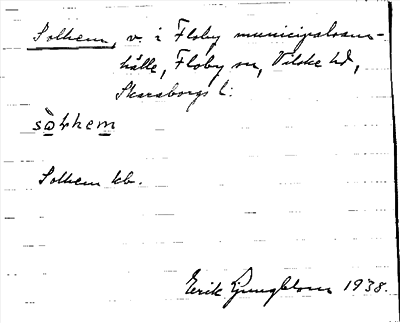 Solhem, v. i Floby municipalsam-
hälle, Floby sn, Vilske hd,
Skaraborgs l:
Solhem kb.
Erik Ljungblom 1938.